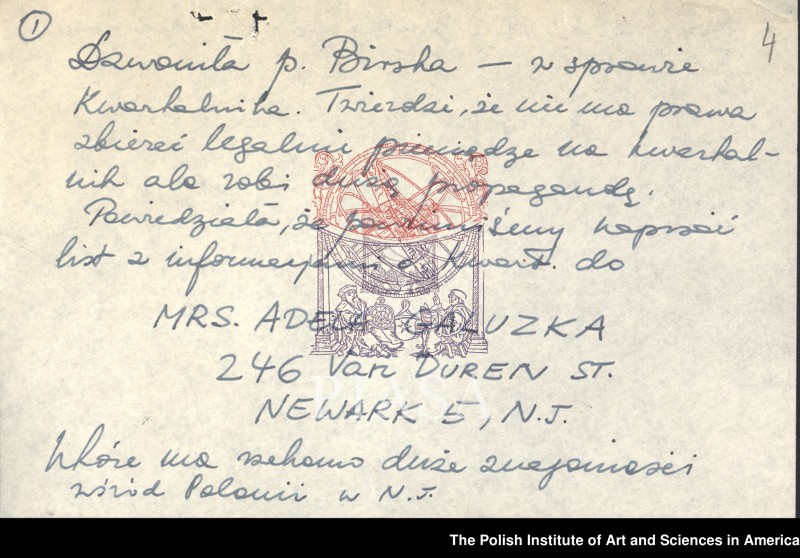 1
4
Dzwoniła p. Birska — w sprawie
Kwartalnika. Twierdzi, że nie ma prawa
zbierać legalnie pieniądze na kwartal-
nik ale robi dużą propagandę.
Powiedziała, że powinniśmy napisać
list z informacjami o kwart. do
MRS. ADELA GALUZKA
246 Van DUREN ST.
NEWARK 5, N.J.
która ma rzekomo duże znajomości
wśród Polonii w N.J.
PIASA
The Polish Institute of Art and Sciences in America